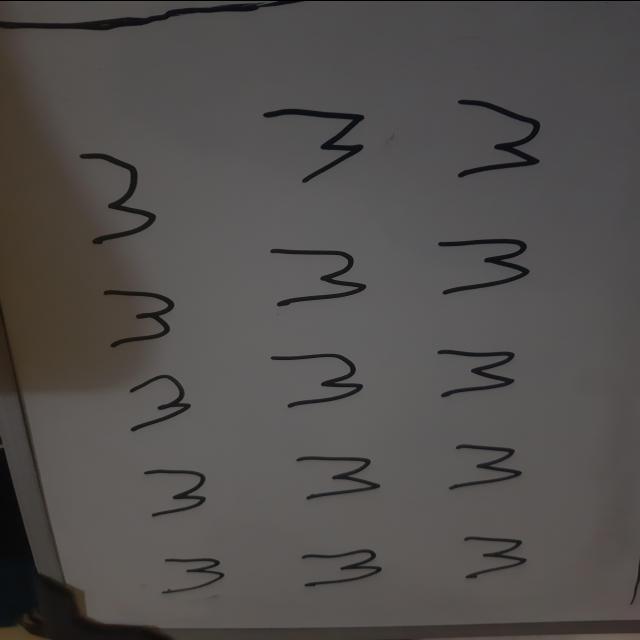 3 3 3
3 3 3
3 3 3
3 3 3
3 3 3